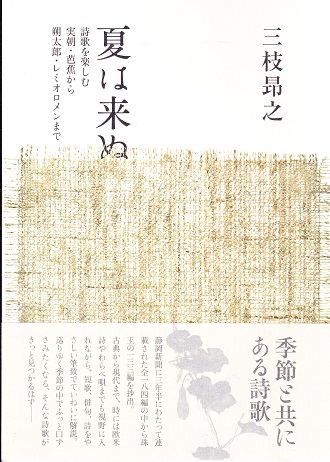 三枝昂之
夏は来ぬ
詩歌を楽しむ
実朝・芭蕉から
朔太郎・レミオロメンまで
季節と共に
ある詩歌
静岡新聞に三年半にわたって連
載された全一八四編の中から珠
玉の一二三編を抄出。
古典から現代まで、時には欧米
詩やわらべ唄までも視野に入
れながら、短歌、俳句、詩をや
さしい筆致でていねいに解説。
巡りゆく季節の中でふっと口ず
さみたくなる、そんな詩歌が
きっと見つかるはず——